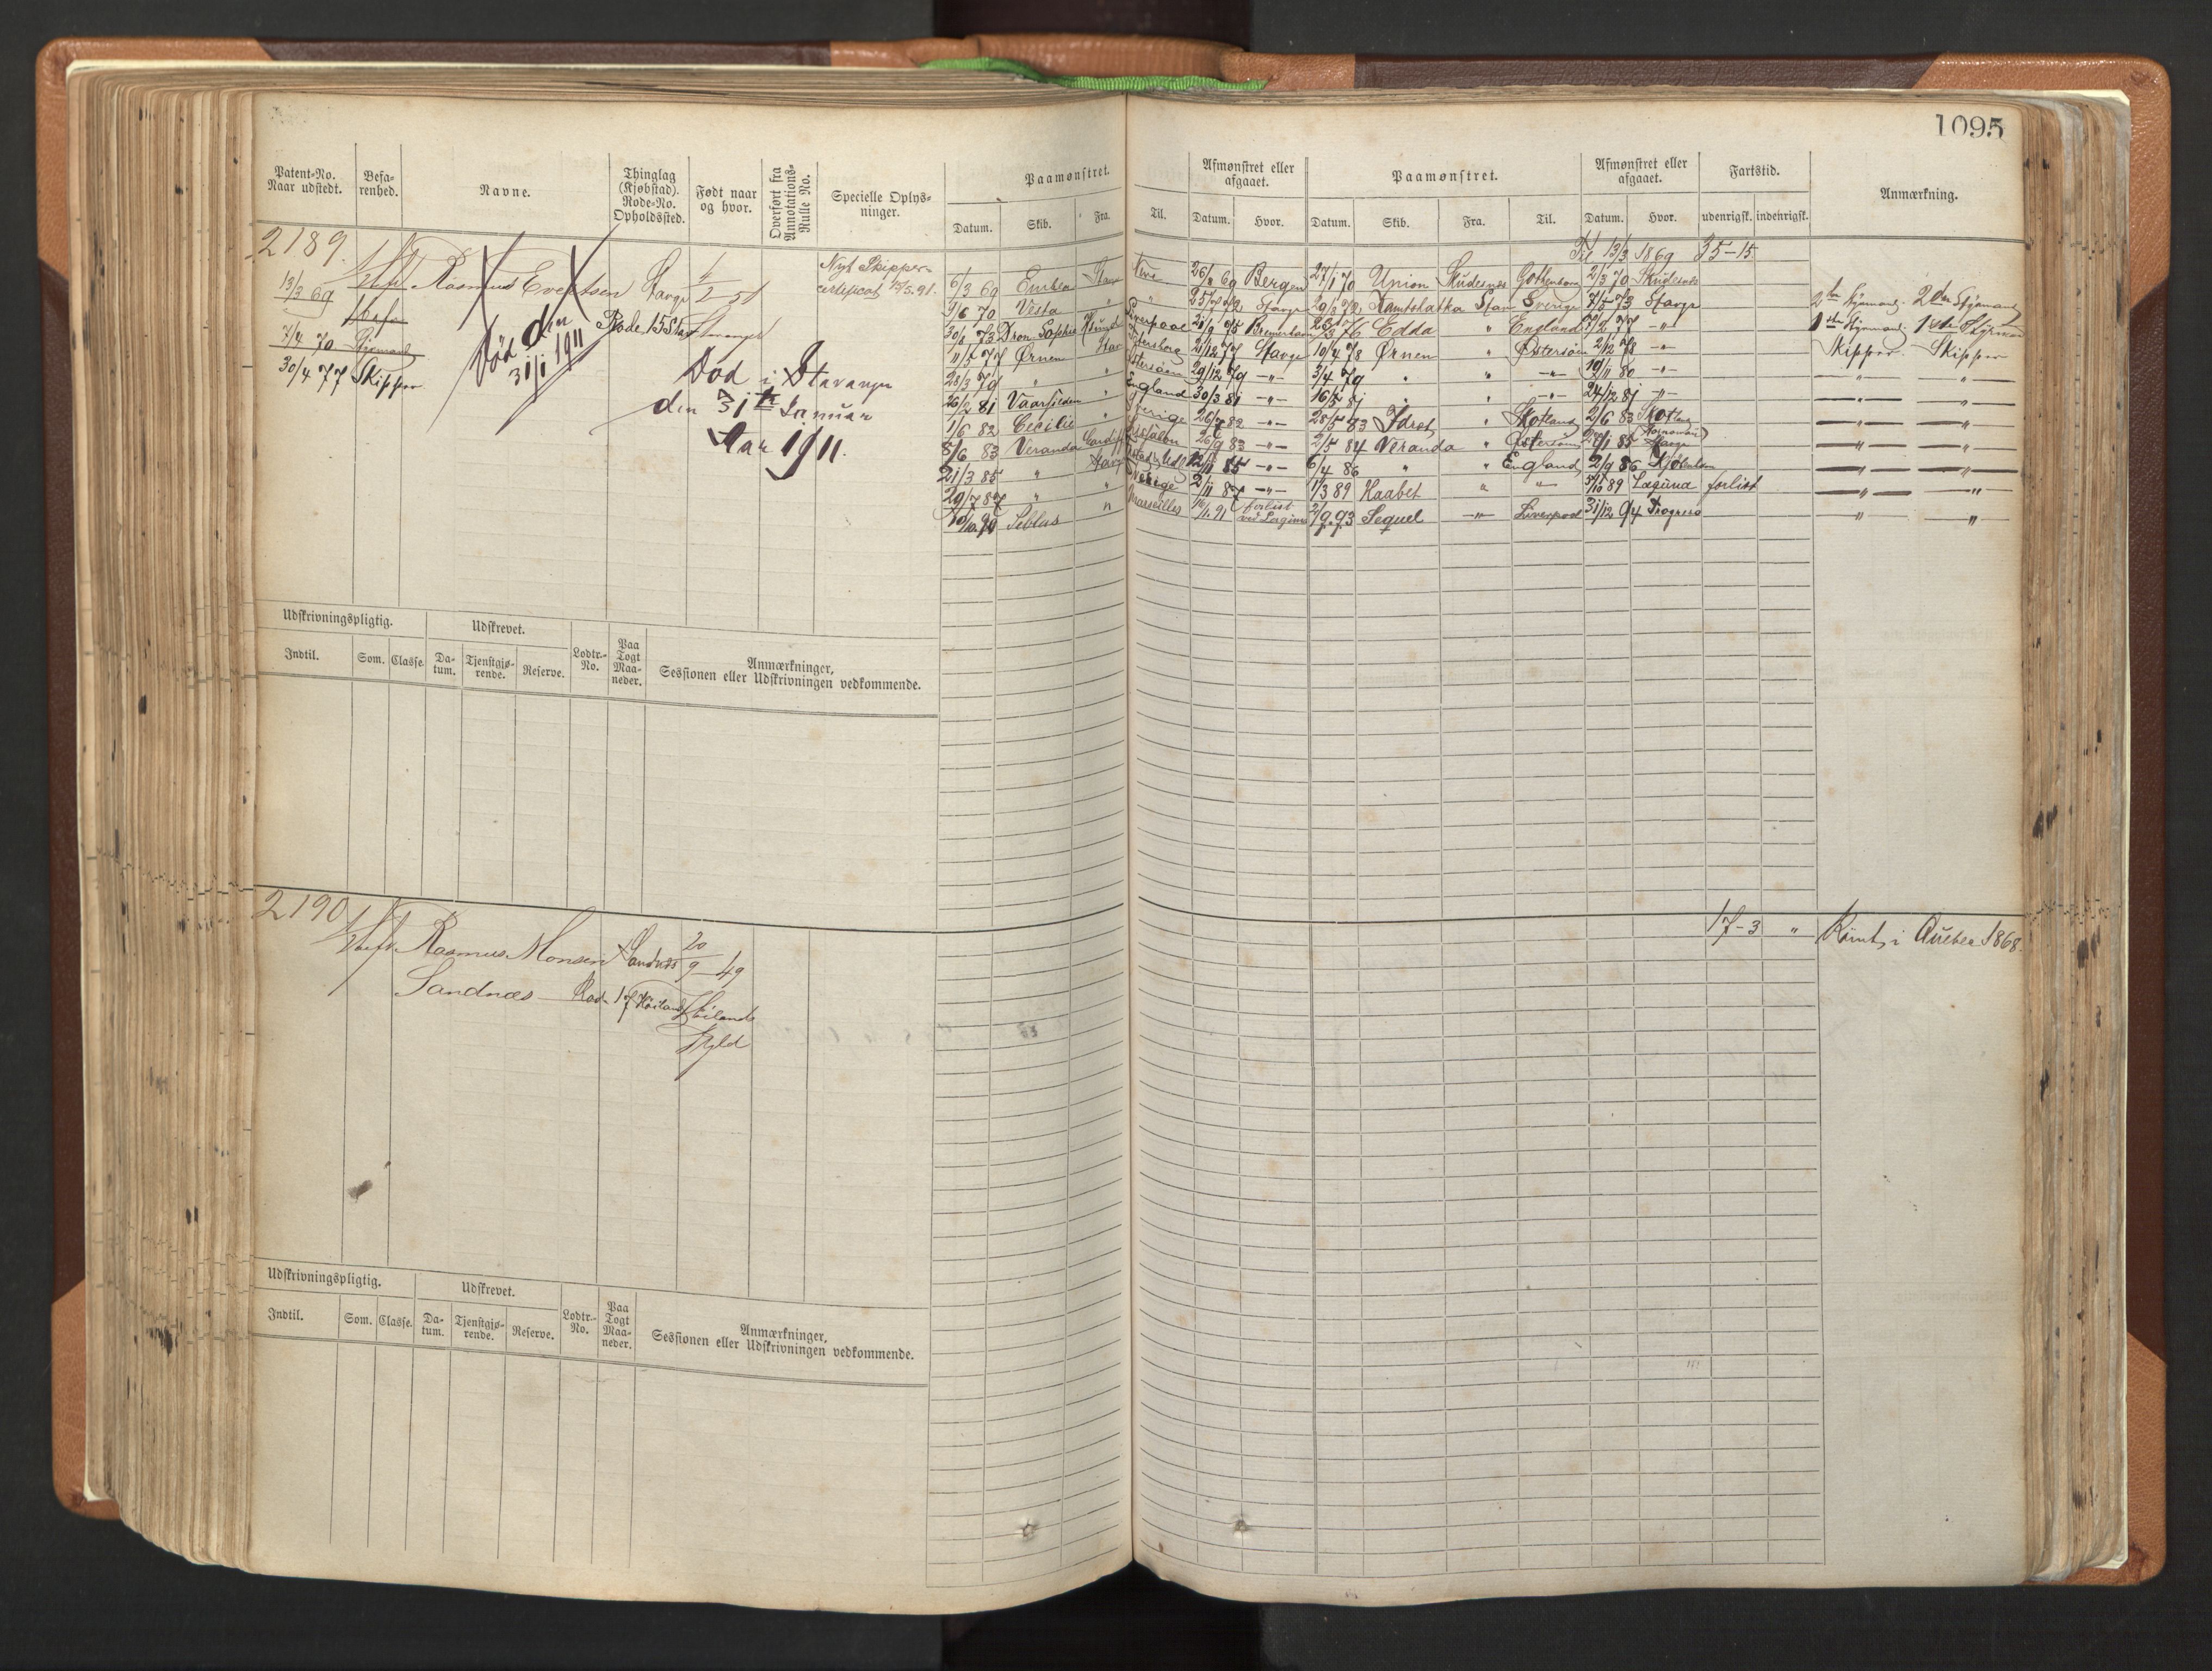 1095
Patent-No. Naar udstedt.
Befarenhed.
Navne.
Thinglag (Kjøbstad). Rode-No. Opholdssted.
Født naar og hvor.
Overført fra Annotations-Rulle No.
Specielle Oplysninger.
Paamønstret.
Datum. Skib. Fra. Til.
Afmønstret eller afgaaet.
Datum. Hvor.
Paamønstret.
Datum. Skib. Fra. Til.
Afmønstret eller afgaaet.
Datum. Hvor.
Fartstid.
udenrigsk. indenrigsk.
Anmærkning.
2189.
Rasmus Evertsen
13/3 69
7/4 70 Styrmand
30/4 77 Skipper
Død den 31/1 1911
Rode 15 Stav
Nyt Skippercertificat 12/5. 91.
Død i Stavanger
den 31te Januar
Aar 1911.
Til 13/3 1869 35-15
6/3 69 Stav 26/8 69 Bergen 27/1 70 Union Skudesnæs Gothenborg 2/3 70
1/6 70 Vesta " " 25/7 72 Stavgr 29/8 72 Kamtschatka Stav Sverige 7/5 73 Stavgr 2den Styrmand 2den Styrmand
30/8 73 Dron Sophie Liverpool 21/9 75 Bremerhaven 76 Edda " England 7/2 77 -"- 1ste Styrmand 1ste Styrmand
11/5 77 Ørnen Stav 21/12 77 Stavgr 10/4 78 Ørnen " Østersøen 2/12 78 -"- Skipper Skipper
28/3 79 " " Østersøen 29/12 79 -"- 3/4 79 " " -"- 19/11 80 -"- " "
26/2 81 Vaarsilden " England 30/3 81 -"- 16/5 81 " " -"- 24/12 81 -"- " "
1/6 82 Cecilie " Sverige 26/7 82 -"- 28/5 83 Idræt " Skotland 2/6 83 Skotland " "
8/6 83 Veranda Cardiff 26/9 83 -"- 2/5 84 Veranda " Østersøen 85 Stavgr " "
21/3 85 " Stavgr 12/11 85 -"- 6/4 86 " " England 2/9 86 " "
29/7 87 " " Sverige 2/11 87 -"- 1/3 89 Haabet " " 5/10 89 Laguna forlist " "
10/10. 90 " Marseilles 91 forlist ved Laguna 2/9. 93 Sequel -"- Liverpool 31/12 94 Progreso " "
Udskrivningspligtig.
Udskrevet.
Indtil. Som. Classe. Datum. Tjenstgjørende. Reserve. Lodtr.-No. Paa Togt Maaneder.
Anmærkninger, Sessionen eller Udskrivningen vedkommende.
2190
Rasmus Monsen Sandnæs 20/9-49
Sandnæs Rode 17 Høiland Høilands
17-3 " Rømt i Quebec 1868
Udskrivningspligtig.
Udskrevet.
Indtil. Som. Classe. Datum. Tjenstgjørende. Reserve. Lodtr.-No. Paa Togt Maaneder.
Anmærkninger, Sessionen eller Udskrivningen vedkommende.